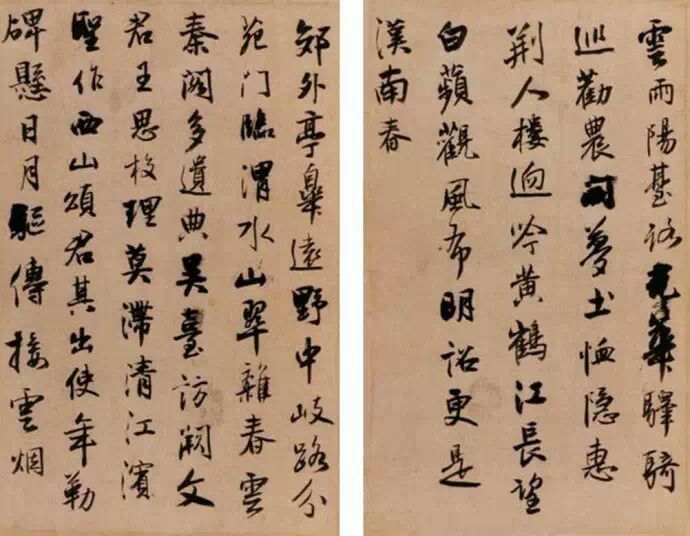 雲雨陽臺路光華驛騎
巡勸農開夢土恤隱惠
荆人樓迥吟黃鶴江長望
白蘋觀風布明詔更是
漢南春
郊外亭皋遠野中岐路分
苑門臨渭水山翠雜春雲
秦閣多遺典吳臺訪闕文
君王思校理莫滯清江濱
聖作西山頌君其出使年勒
碑懸日月驅傳接雲烟